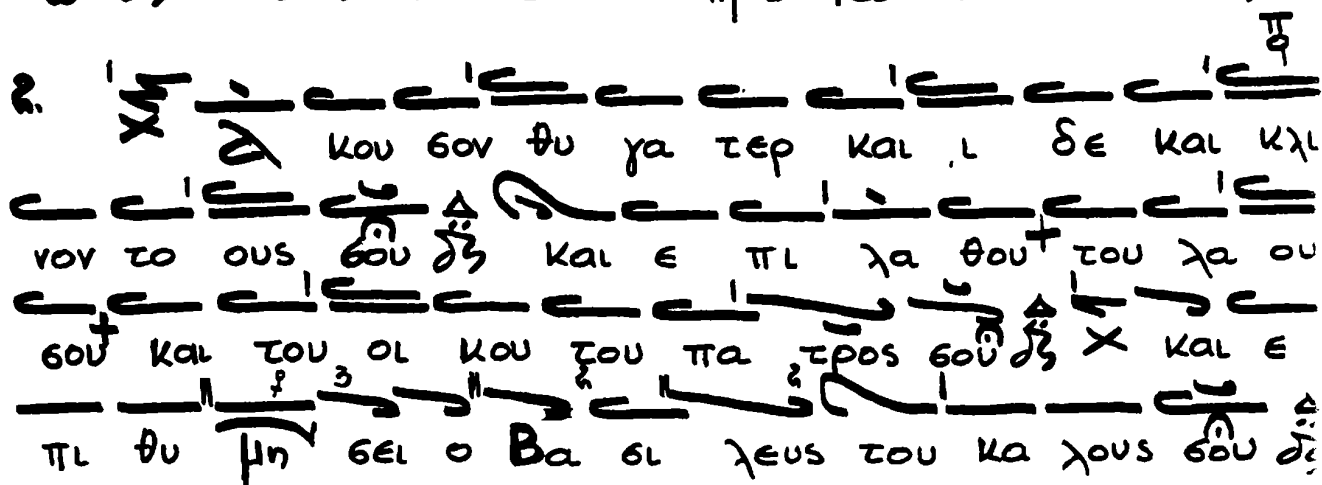 Ἀ κου σον θυ γα τερ και ι δε και κλι
νον το ους σου και ε πι λα θου του λα ου
σου και του οι κου του πα τρος σου και ε
πι θυ μη σει ο Βα σι λευς του κα λους σου